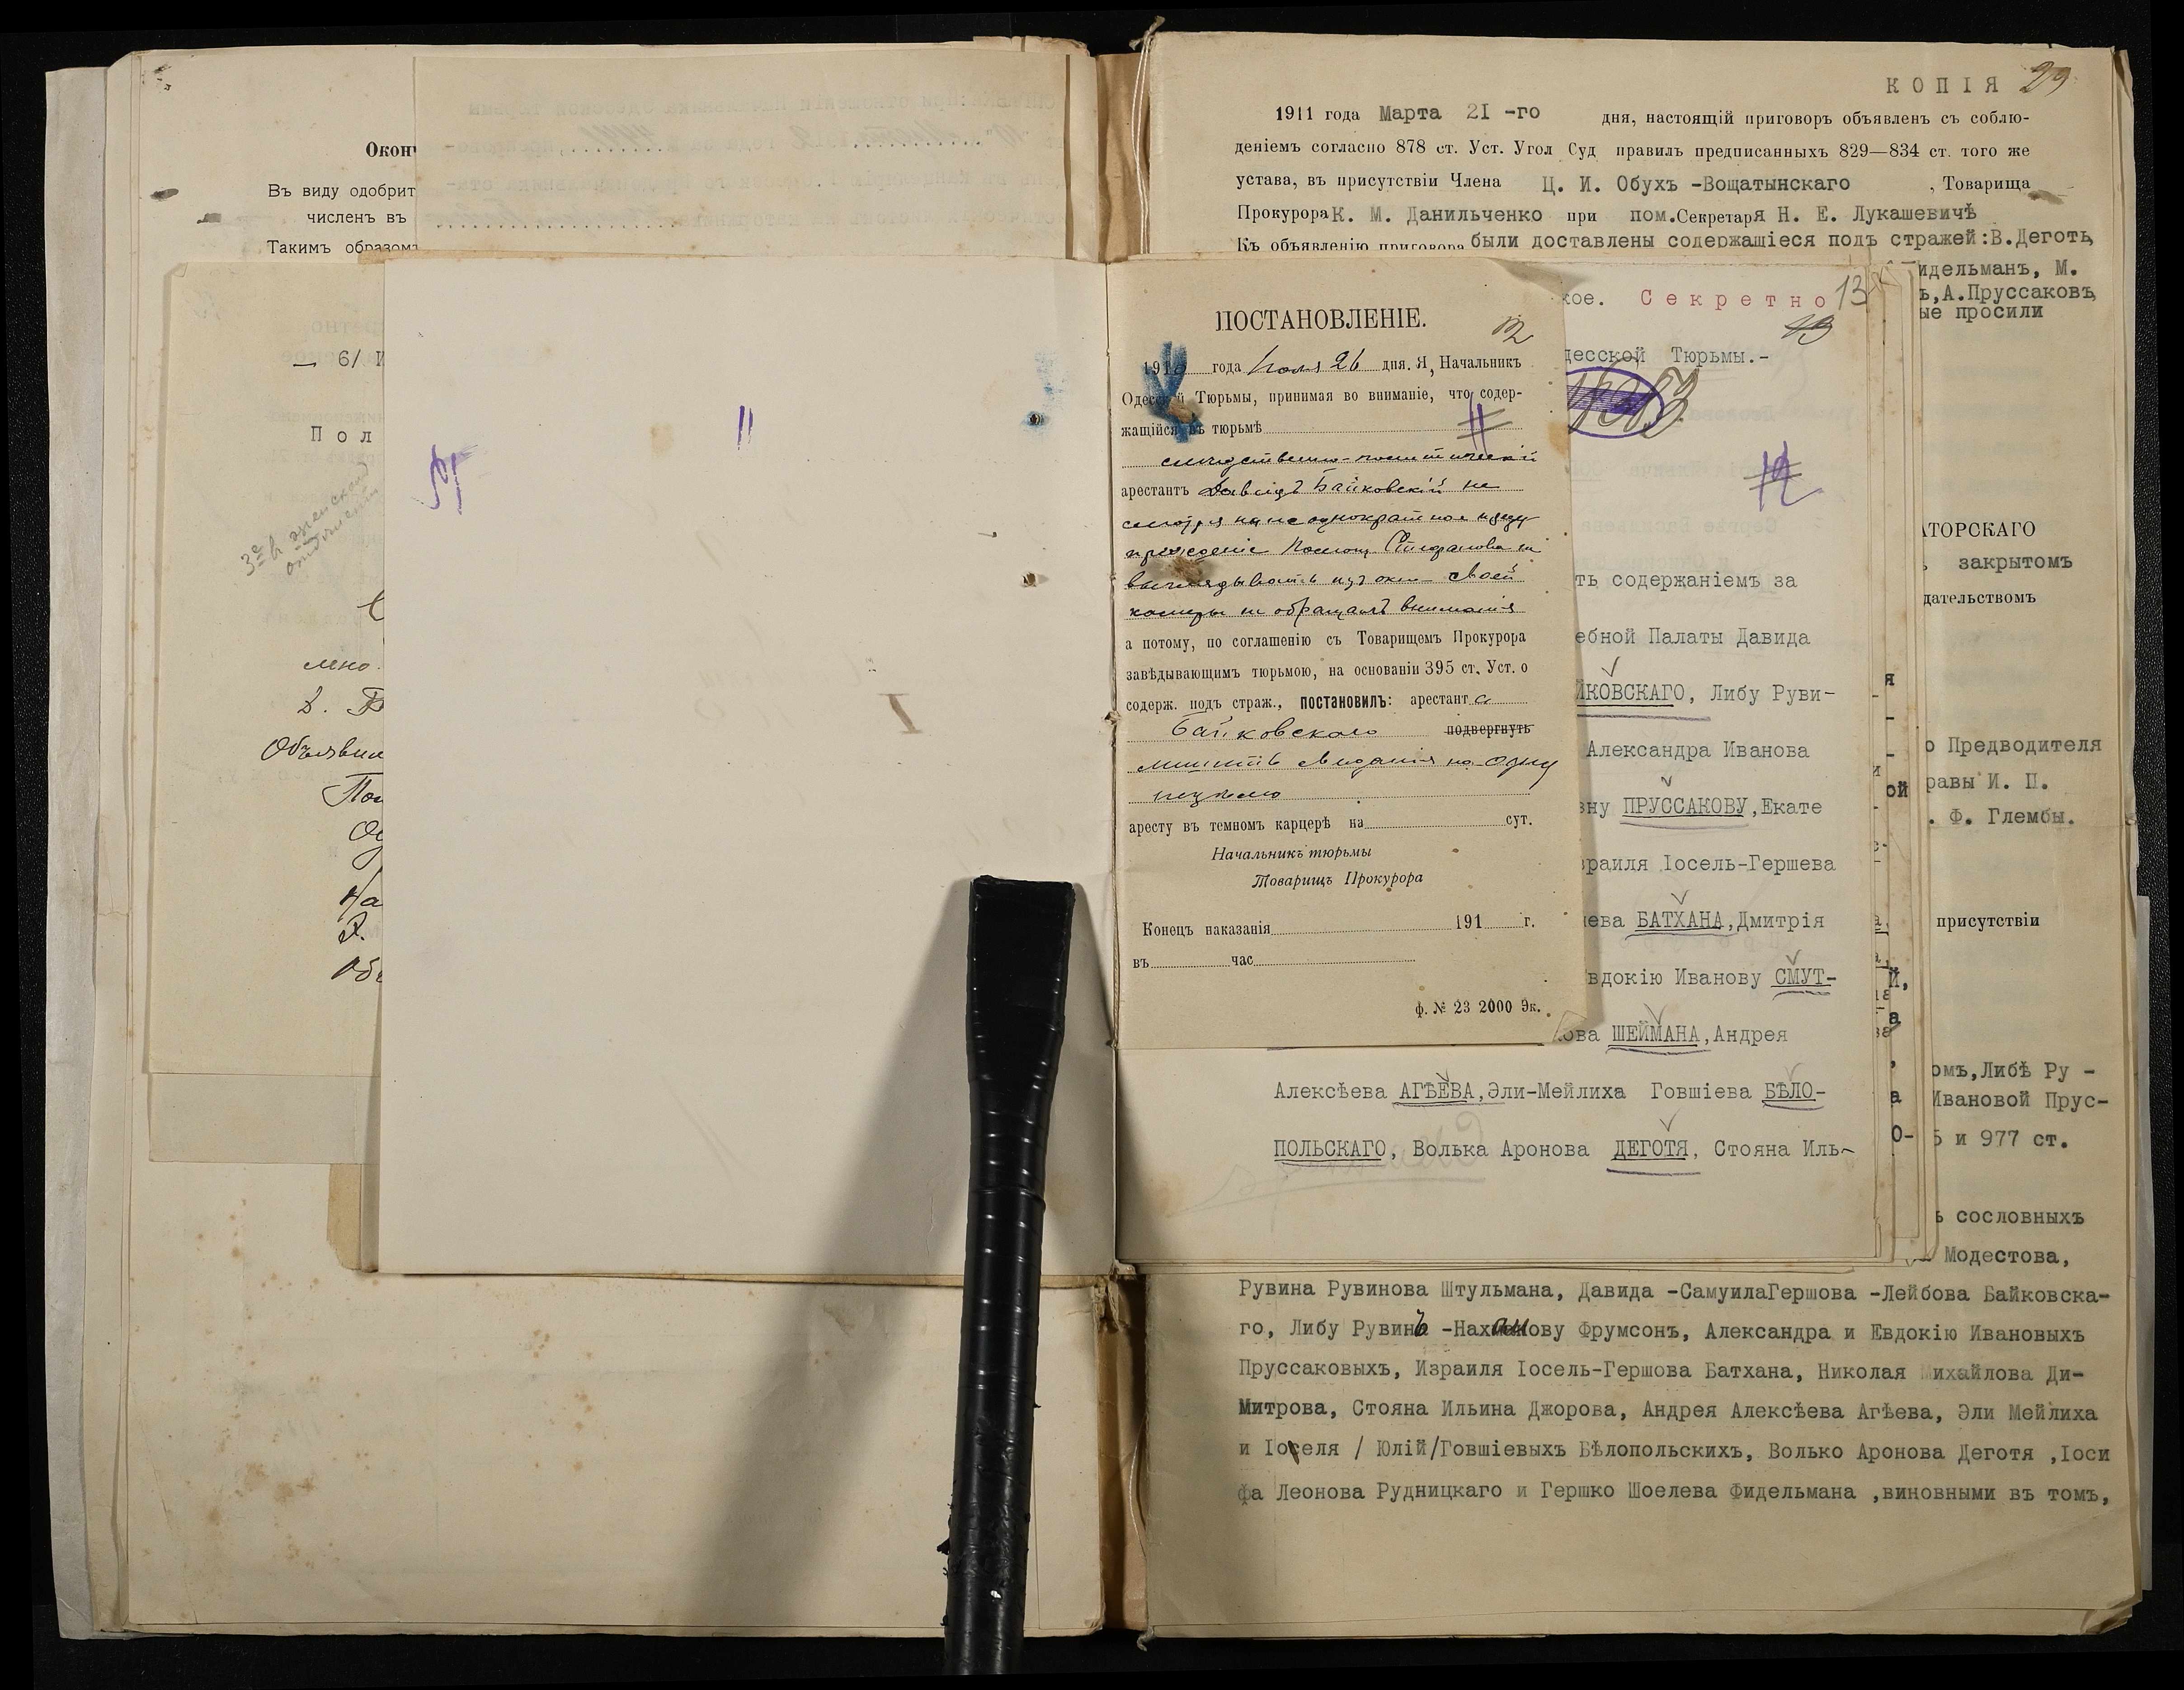 Оконч
Въ виду одобрит
численъ въ
Такимъ образомъ
— 6/ И
Пол
3е въ
мно
Д. Б
Объявил
По
На
КОПІЯ 29
1911 года Марта 21 -го дня, настоящій приговоръ объявленъ съ соблю-
деніемъ согласно 878 ст. Уст. Угол Суд правилъ предписанныхъ 829—834 ст. того же
устава, въ присутствіи Члена Ц. И. Обухъ -Вощатынскаго , Товарища
Прокурора К. М. Данильченко при пом.Секретаря Н. Е. Лукашевичѣ
Къ объявленію приговора были доставлены содержащіеся подъ стражей:В.Деготь,
идельманъ, М.
ъ,А.Пруссаковъ,
ые просили
ПОСТАНОВЛЕНІЕ.
12
191 года Іюля 26 дня. Я, Начальникъ
Одесской Тюрьмы, принимая во вниманіе, что содер-
жащійся въ тюрьмѣ
слѣдственно-политическій
арестантъ Давидъ Байковскій не
смотря на неоднократное преду
прежденіе Помощ. Стефанова не
выглядывать изъ окна своей
камеры не обращалъ вниманія
а потому, по соглашенію съ Товарищемъ Прокурора
завѣдывающимъ тюрьмою, на основаніи 395 ст. Уст. о
содерж. подъ страж., постановилъ: арестанта
Байковскаго подвергнуть
лишить свиданія на одну
недѣлю
аресту въ темномъ карцерѣ на сут.
Начальникъ тюрьмы
Товарищъ Прокурора
Конецъ наказанія 191 г.
въ час
ф. № 23 2000 Эк.
кое. Секретно 13
13
десской Тюрьмы.-
12
ть содержаніемъ за
ебной Палаты Давида
ЙКОВСКАГО, Либу Руви-
Александра Иванова
вну ПРУССАКОВУ,Екате
зраиля Іосель-Гершева
иева БАТХАНА,Дмитрія
вдокію Иванову СМУТ-
ова ШЕЙМАНА,Андрея
Алексѣева АГѢЕВА,Эли-Мейлиха Говшіева БѢЛО-
ПОЛЬСКАГО, Волька Аронова ДЕГОТЯ, Стояна Иль-
АТОРСКАГО
закрытомъ
дательствомъ
о Предводителя
равы И. П.
. Ф. Глембы.
присутствіи
омъ,Либѣ Ру -
Ивановой Прус-
5 и 977 ст.
ъ сословныхъ
Модестова,
Рувина Рувинова Штульмана, Давида -СамуилаГершова -Лейбова Байковска-
го, Либу Рувинъ -Нахамову Фрумсонъ, Александра и Евдокію Ивановыхъ
Пруссаковыхъ, Израиля Іосель-Гершова Батхана, Николая Михайлова Ди-
митрова, Стояна Ильина Джорова, Андрея Алексѣева Агѣева, Эли Мейлиха
и Іоселя / Юлій/Говшіевыхъ Бѣлопольскихъ, Волько Аронова Деготя ,Іоси
фа Леонова Рудницкаго и Гершко Шоелева Фидельмана ,виновными въ томъ,